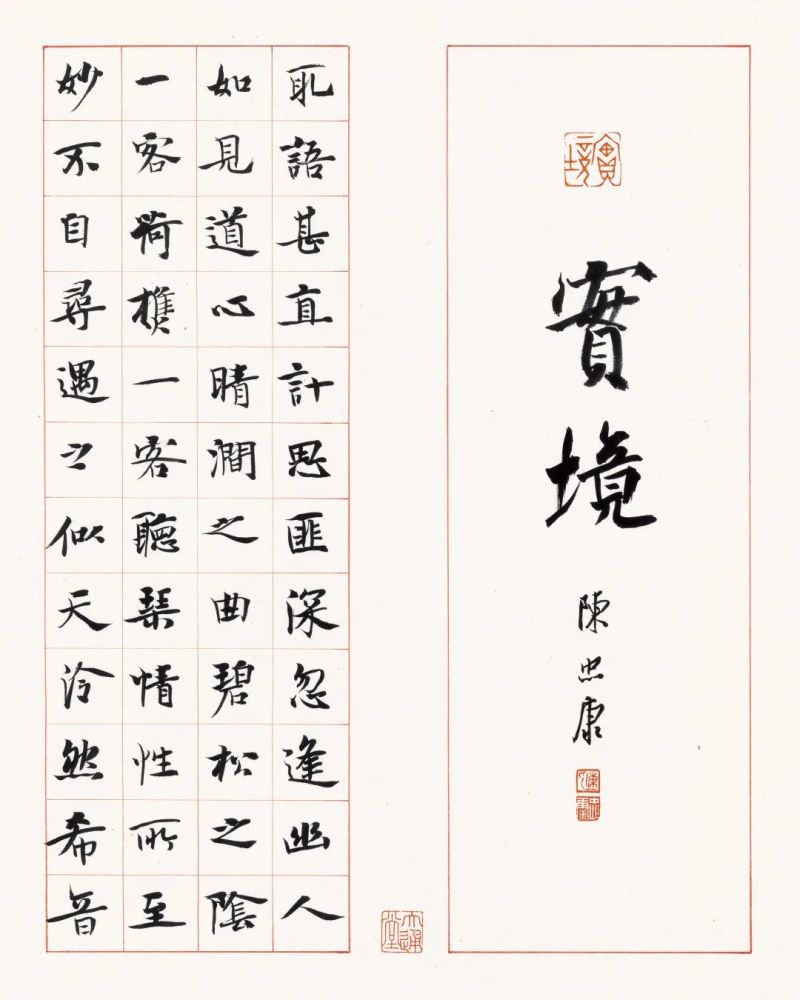 實境
實境
陳忠康
取語甚直計思匪深忽逢幽人
如見道心晴澗之曲碧松之陰
一客荷樵一客聽琴情性所至
妙不自尋遇之似天泠然希音